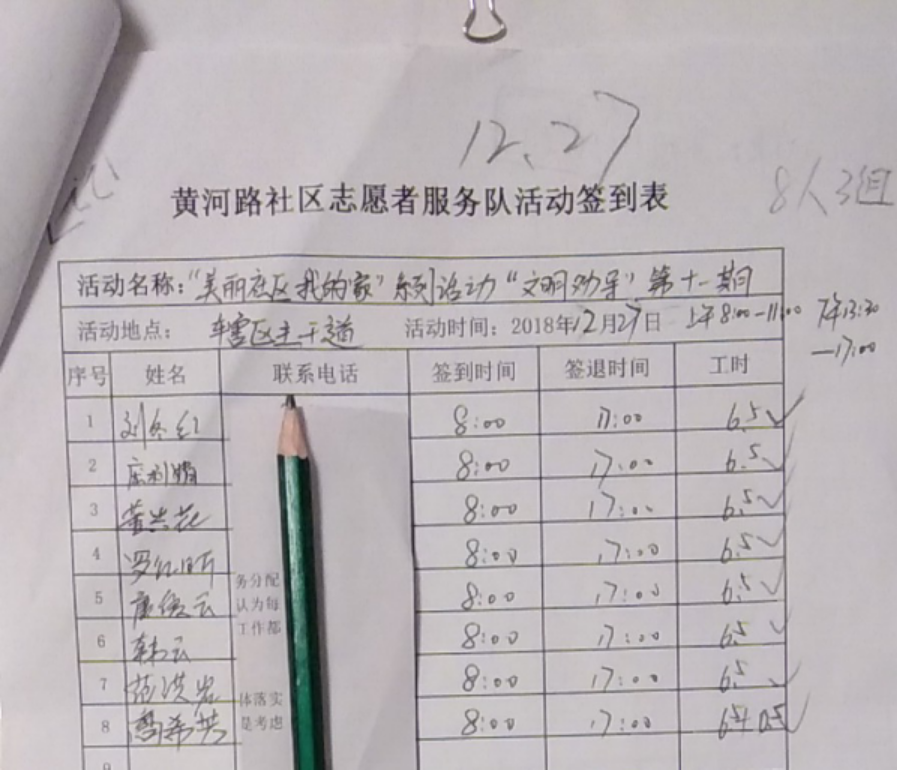 12.27
8人3组
黄河路社区志愿者服务队活动签到表
活动名称："美丽社区我的家"系列活动"文明劝导"第十一期
活动地点： 辖区主干道 活动时间：2018年12月27日 上午8:00-11:00 下午13:30
-17:00
序号 姓名 联系电话 签到时间 签退时间 工时
1 刘冬红 8:00 17:00 6.5✓
2 8:00 17:00 6.5✓
3 8:00 17:00 6.5✓
4 8:00 17:00 6.5✓
务分配
5 8:00 17:00 6.5✓
认为每
工作都
6 韩云 8:00 17:00 6.5✓
7 范洪岩 8:00 17:00 6.5✓
体落实
8 8:00 17:00 6.5+0.5✓
是考虑
9